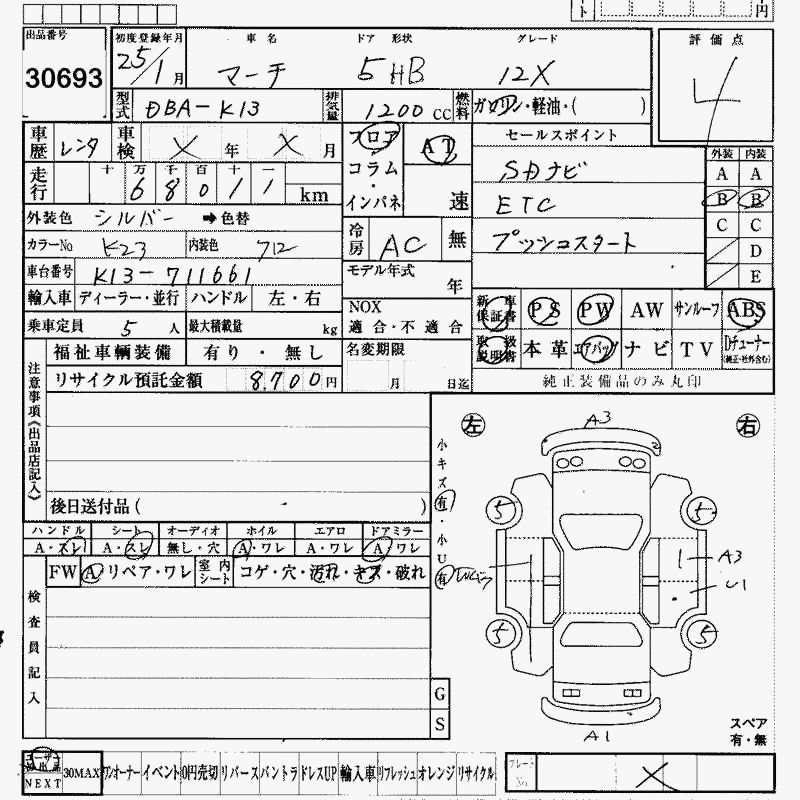 ト 円
出品番号
30693
初度登録年月 車名 ドア 形状 グレード
25/1月 マーチ 5HB 12X
評価点
4
型式 DBA-K13 排気量 1200 CC 燃料 ガソリン・軽油・( )
車歴 レンタ 車検 X 年 X 月
走行 十 万 千 百 十 一
6 8 0 1 1 km
フロア
コラム
・
インパネ
AT
速
セールスポイント
SDナビ
ETC
プッシュスタート
外装 内装
A A
B B
C C
D
E
外装色 シルバー ➡色替
カラーNo K23 内装色 712
冷房 AC 無
車台番号 K13-711661
モデル年式 年
輸入車 ディーラー・並行 ハンドル 左・右
乗車定員 5 人 最大積載量 kg
NOX
適合・不適合
新車保証書 PS PW AW サンルーフ ABS
取扱説明書 本革 エアバッグ ナビ TV Dチューナー(純正・社外含む)
純正装備品のみ丸印
福祉車輌装備 有り・無し
名変期限
月 日迄
リサイクル預託金額 8,700 円
注意事項《出品店記入》
後日送付品( )
ハンドル シート オーディオ ホイル エアロ ドアミラー
A・スレ A・スレ 無し・穴 A・ワレ A・ワレ A・ワレ
FW A・リペア・ワレ 室内シート コゲ・穴・汚れ・キズ・破れ
検査員記入
G
S
左 右
小キズ有・小U有
A3
2
5 5
A3
U1
5 5
A1
スペア
有・無
NEXT 30MAX ワンオーナー イベント 0円売切 リバース バントラ ドレスUP 輸入車 リフレッシュ オレンジ リサイクル
X